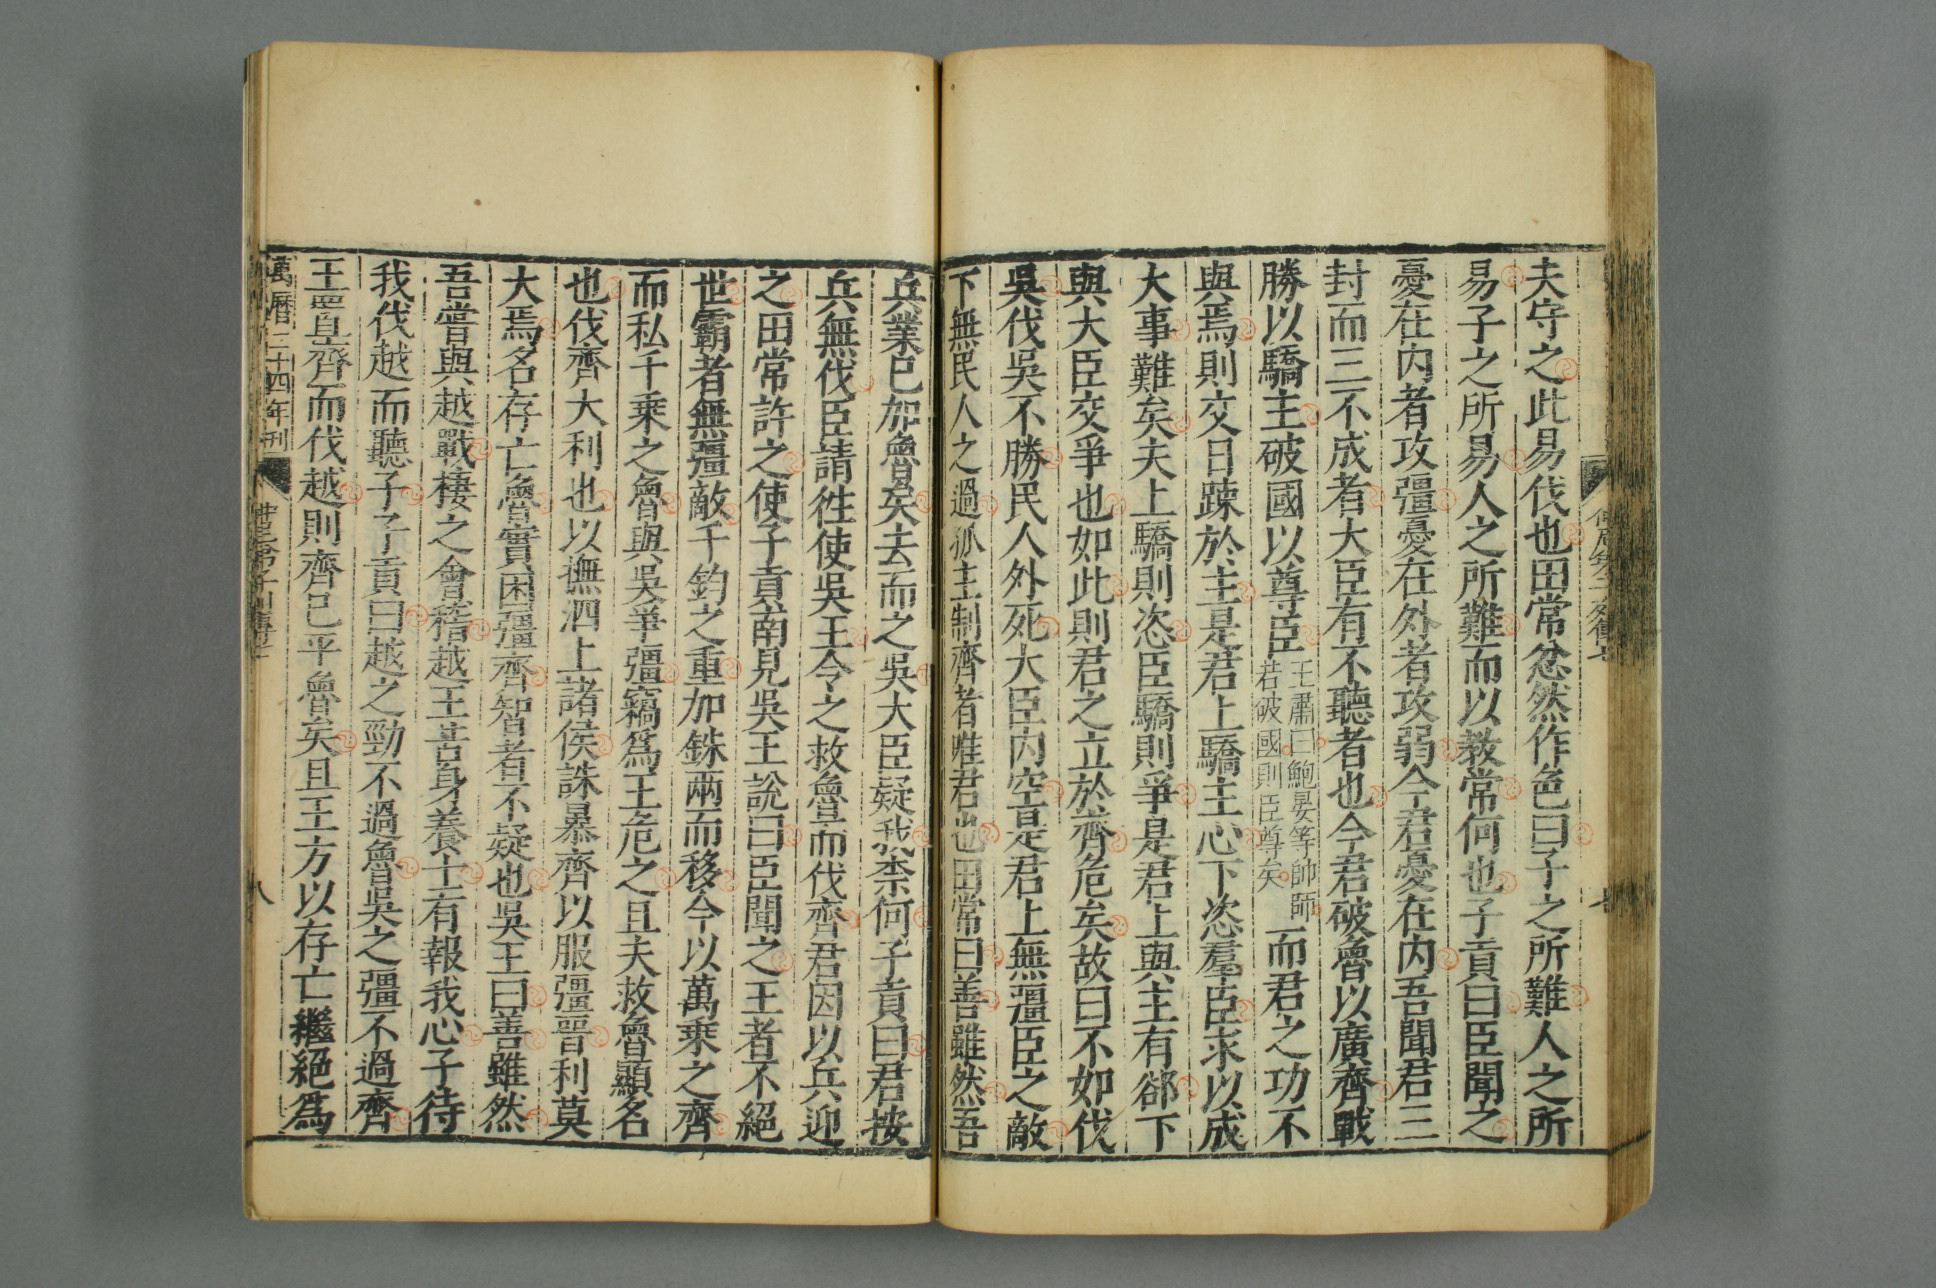 夫守之此易伐也田常忿然作色曰子之所難人之所
易子之所易人之所難而以教常何也子貢曰臣聞之
憂在内者攻彊憂在外者攻弱今君憂在内吾聞君三
封而三不成者大臣有不聽者也今君破魯以廣齊戰
勝以驕主破國以尊臣王肅曰鮑晏等帥師若破國則臣尊矣而君之功不
與焉則交日踈於主是君上驕主心下恣羣臣求以成
大事難矣夫上驕則恣臣驕則爭是君上與主有郤下
與大臣交爭也如此則君之立於齊危矣故曰不如伐
吳伐吳不勝民人外死大臣内空是君上無彊臣之敵
下無民人之過孤主制齊者唯君也田常曰善雖然吾
兵業已加魯矣去而之吳大臣疑我柰何子貢曰君按
兵無伐臣請徃使吳王令之救魯而伐齊君因以兵迎
之田常許之使子貢南見吳王說曰臣聞之王者不絕
世霸者無彊敵千鈞之重加銖兩而移今以萬乘之齊
而私千乘之魯與吳爭彊竊爲王危之且夫救魯顯名
也伐齊大利也以撫泗上諸侯誅暴齊以服彊晉利莫
大焉名存亡魯實困彊齊智者不疑也吳王曰善雖然
吾嘗與越戰棲之會稽越王苦身養士有報我心子待
我伐越而聽子子貢曰越之勁不過魯吳之彊不過齊
王置齊而伐越則齊已平魯矣且王方以存亡繼絕爲
萬曆二十四年刊
八